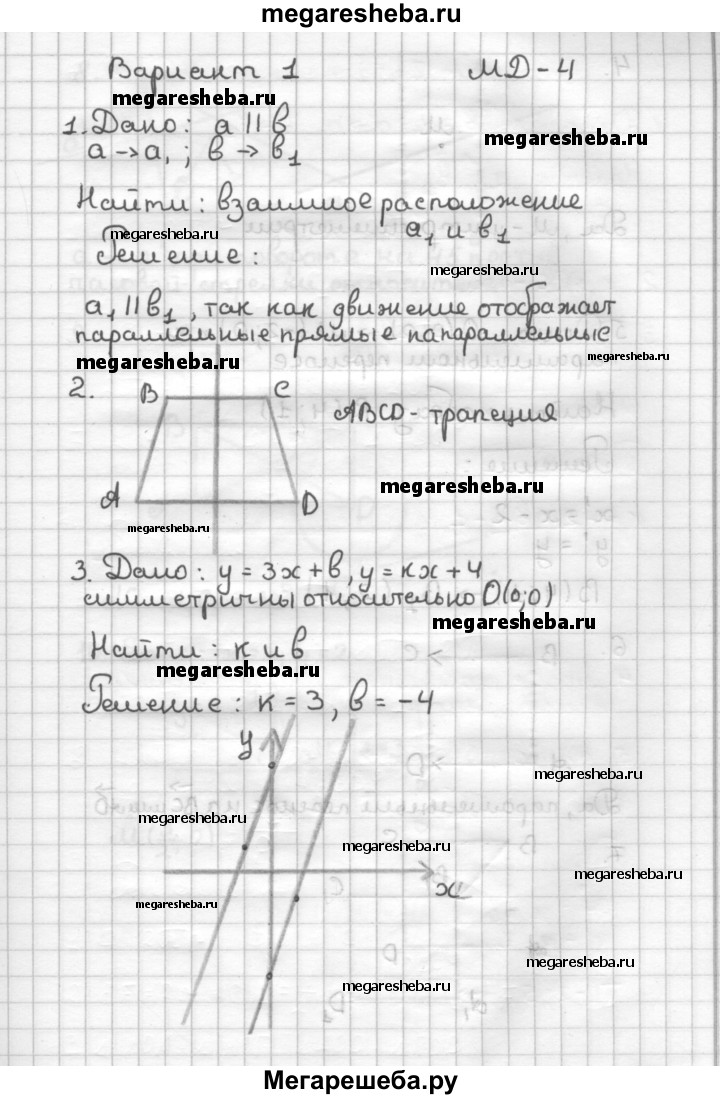 megaresheba.ru
Вариант 1 МД-4
megaresheba.ru
1. Дано: a || в
megaresheba.ru
a → a₁; в → в₁
Найти: взаимное расположение
a₁ и в₁
megaresheba.ru
Решение:
megaresheba.ru
a₁ || в₁, так как движение отображает
параллельные прямые на параллельные
megaresheba.ru
megaresheba.ru
2.
B C
ABCD - трапеция
megaresheba.ru
A D
megaresheba.ru
3. Дано: y = 3x + в, y = кx + 4
симметричны относительно O(0;0)
megaresheba.ru
Найти: к и в
megaresheba.ru
Решение: к = 3, в = -4
y
megaresheba.ru
megaresheba.ru
megaresheba.ru
megaresheba.ru
x
megaresheba.ru
megaresheba.ru
megaresheba.ru
Мегарешеба.ру